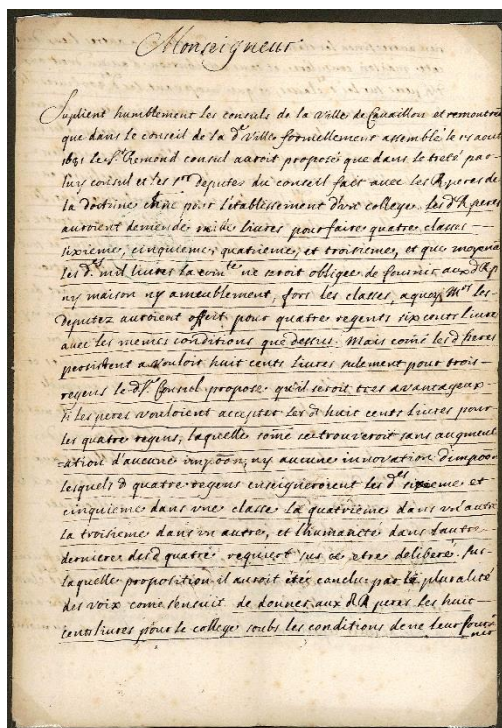 Monseigneur
Suplient humblement les consuls de la ville de Cavaillon et remontrent
que dans le conseil de la d.e ville formellement assemblé le 15 aout
le S.r Remond consul auroit proposé que dans le treté par
luy consul et les s.rs deputez du conseil fait avec les R peres de
la doctrine chre.ne pour l'etablissement d'un college les d. R peres
auroient demandé mille livres pour faire quatre classes
sixieme, cinquieme, quatrieme, et troisieme, et que moyenant
les d.es mil livres la com.te ne seroit obligée de fournir aux d R p
ny maison ny ameublement, fors les classes, a quoy M.rs les
deputez auroient offert pour quatre regents six cents livres
avec les memes conditions que dessus. Mais come les d peres
persistent a vouloir huit cents livres sulement pour trois
regens le d. S.r Consul propose qu'il seroit tres avantageux
si les peres vouloient accepter les d. huit cents livres pour
les quatre regens, laquelle some se trouveroit sans augment
-ation d'aucune impoon, ny aucune innovation d'impoon
lesquels d quatre regens enseigneroient les d.es sixieme et
cinquieme dans vne classe la quatrieme dans vn autre
la troisieme dans vn autre, et l'humanité dans l'autre
derniere des d quatre, requiert sur ce etre deliberé. sur
laquelle proposition il auroit étée conclue par la pluralité
des voix come s'ensuit de donner aux d R peres les huit
cents livres pour le college soubs les conditions de ne leur four
nir